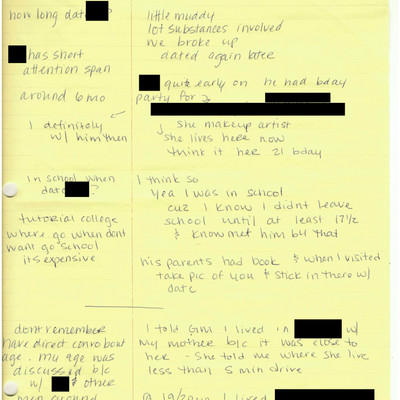 how long dat
little muddy
lot substances involved
we broke up
dated again later
has short
attention span
quite early on he had bday
party for
around 6 mo
I definitely
w/ him then
She makeup artist
she lives here now
think it her 21 bday
in school when
dat ?
I think so
yea I was in school
cuz I know I didnt leave
school until at least 17 1/2
& know met him b4 that
tutorial college
where go when dont
want go school
its expensive
his parents had book & when I visited
take pic of you & stick in there w/
date
dont remember
have direct convo bout
age. my age was
discussed b/c
w/ & other
men around
I told GM I lived in w/
my mother b/c it was close to
her - she told me where she live
less than 5 min drive
I lived